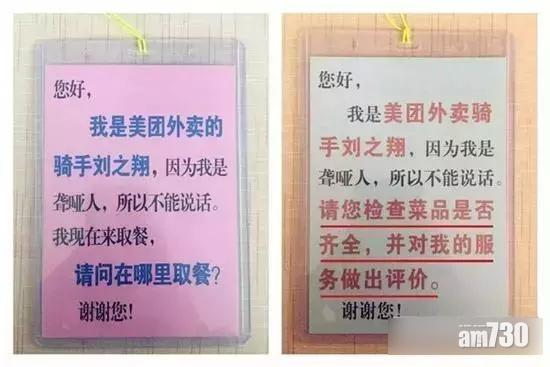 您好，
我是美团外卖的
骑手刘之翔，因为我是
聋哑人，所以不能说话。
我现在来取餐，
请问在哪里取餐？
谢谢您！
您好，
我是美团外卖骑
手刘之翔，因为我是
聋哑人，所以不能说话。
请您检查菜品是否
齐全，并对我的服
务做出评价。
谢谢您！
am730